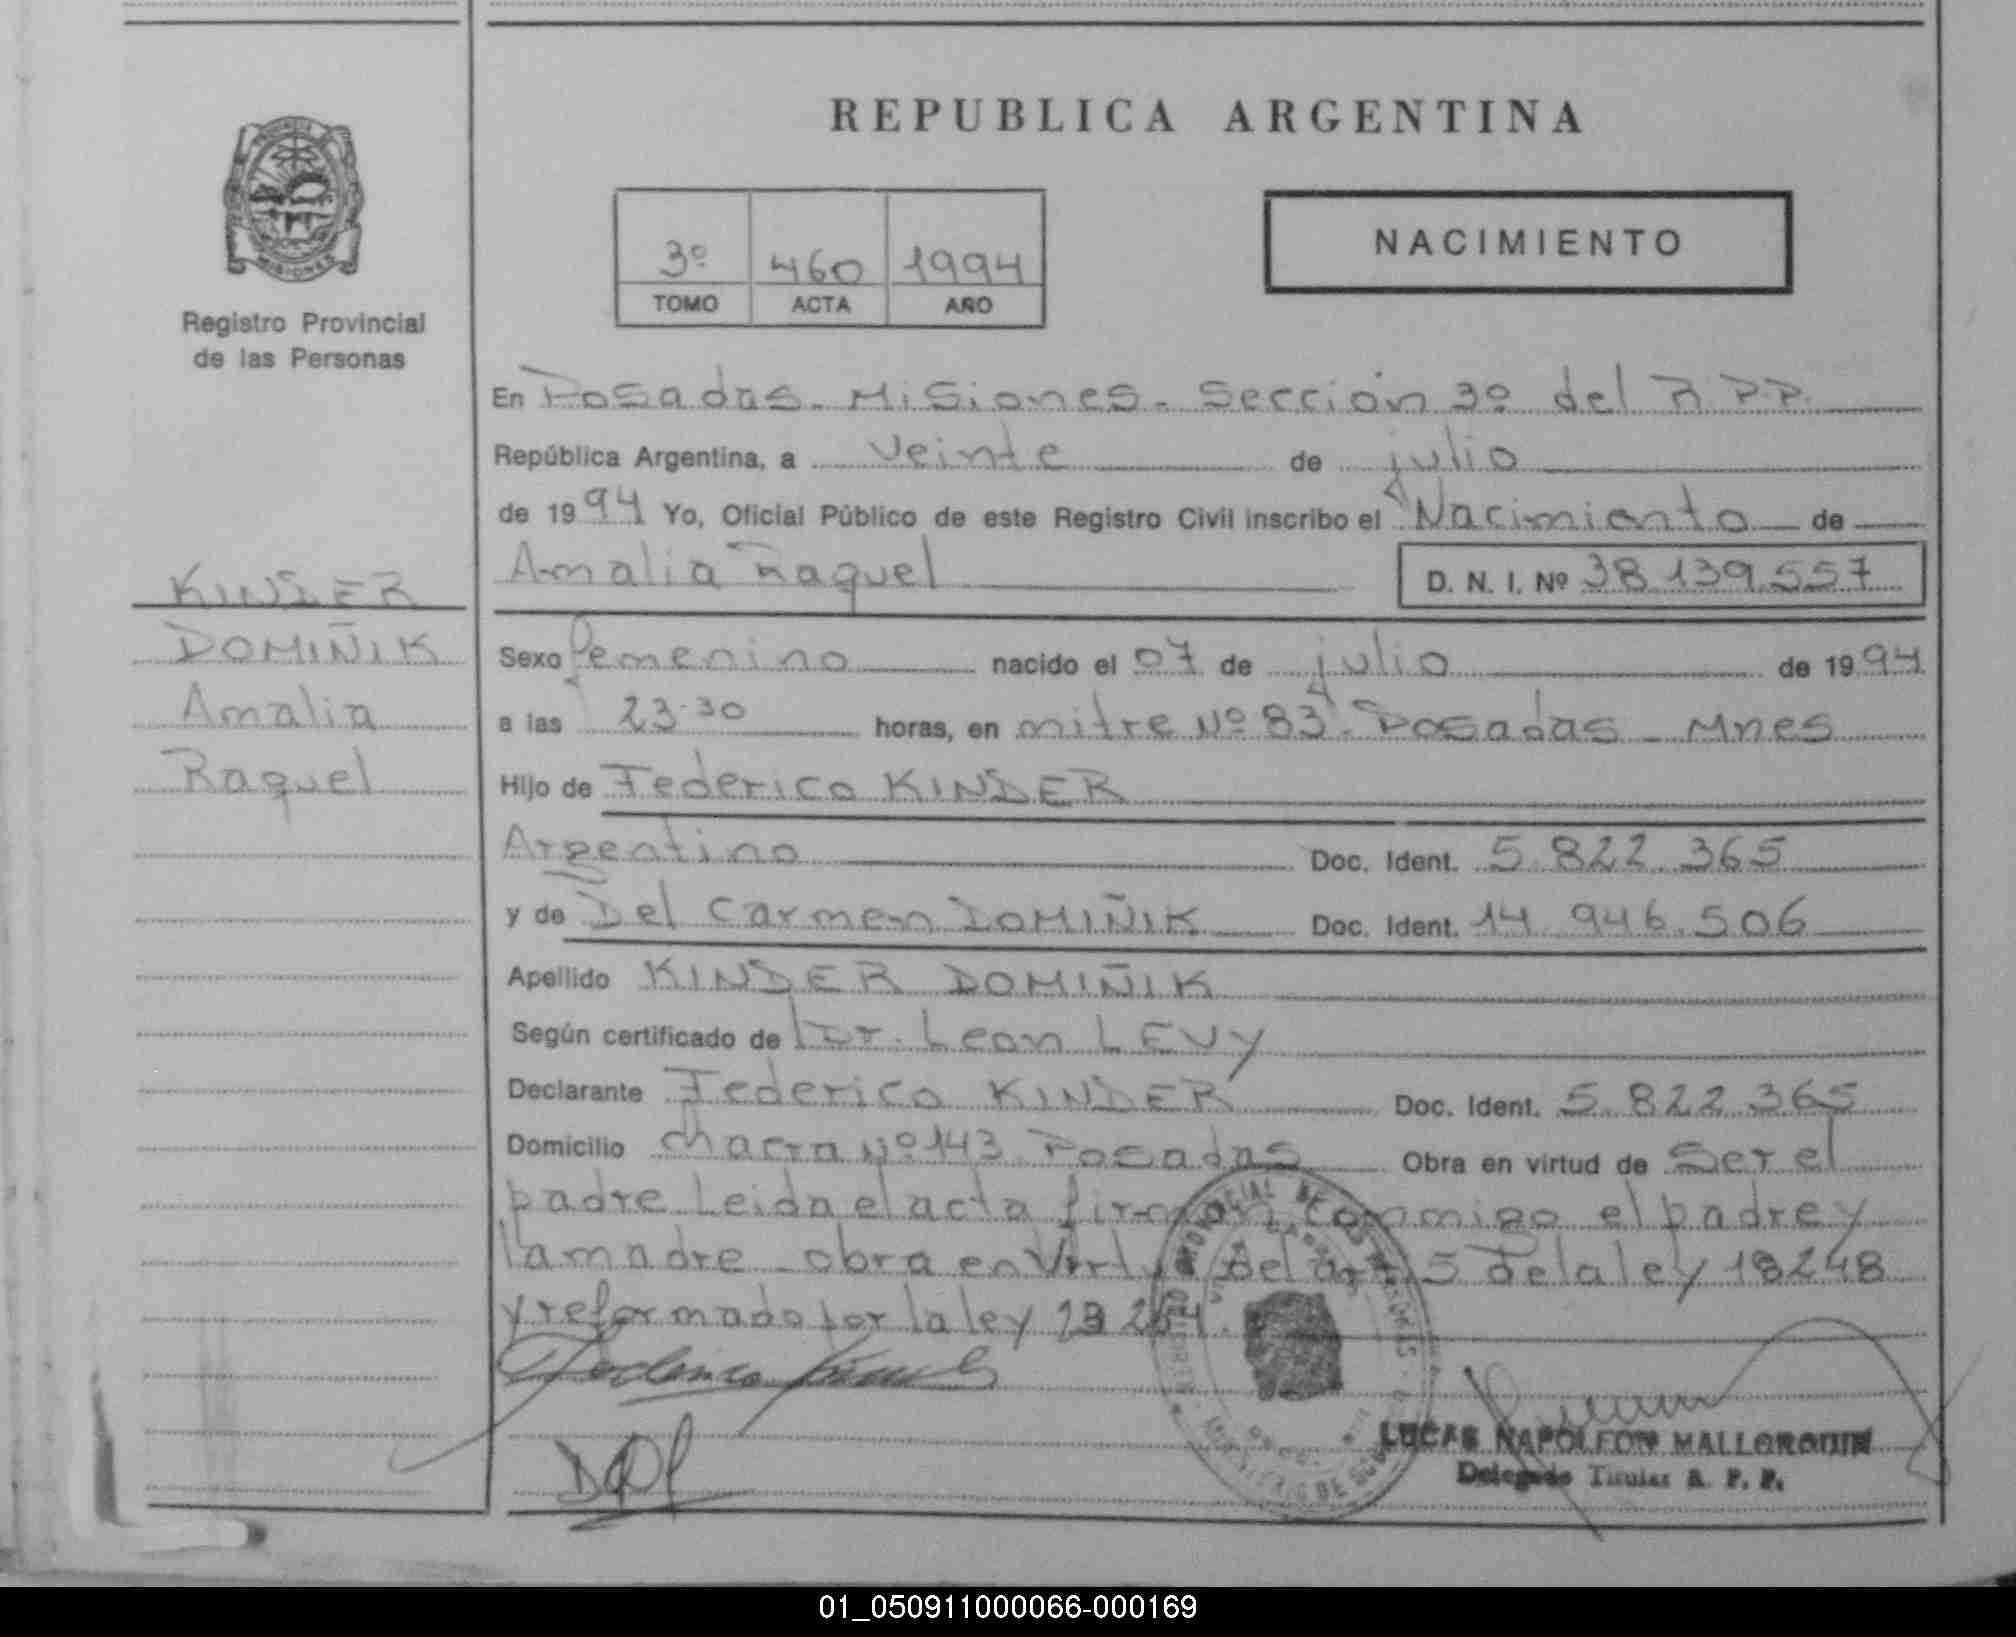 REPUBLICA ARGENTINA
NACIMIENTO
3º 460 1994
TOMO ACTA AÑO
MISIONES
Registro Provincial
de las Personas
KINDER
DOMIÑIK
Amalia
Raquel
En Posadas - Misiones - Sección 3º del R.P.P.
República Argentina, a veinte de julio
de 1994 Yo, Oficial Público de este Registro Civil inscribo el Nacimiento de
Amalia Raquel D. N. I. Nº 38.139.557
Sexo femenino nacido el 07 de julio de 1994
a las 23.30 horas, en mitre Nº 83 - Posadas - Mnes
Hijo de Federico KINDER
Argentino Doc. Ident. 5.822.365
y de Del Carmen DOMIÑIK Doc. Ident. 14.946.506
Apellido KINDER DOMIÑIK
Según certificado de Dr. Leon LEVY
Declarante Federico KINDER Doc. Ident. 5.822.365
Domicilio chacra Nº 143 Posadas Obra en virtud de Ser el
padre Leida el acta firman conmigo el padre y
la madre - obra en Virtud del art 5 de la ley 18248
y reformado por la ley
LUCAS NAPOLEON MALLORQUIN
Delegado Titular R. P. P.
01_050911000066-000169